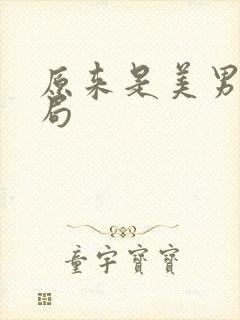 原来是美男
局
童宇宝宝